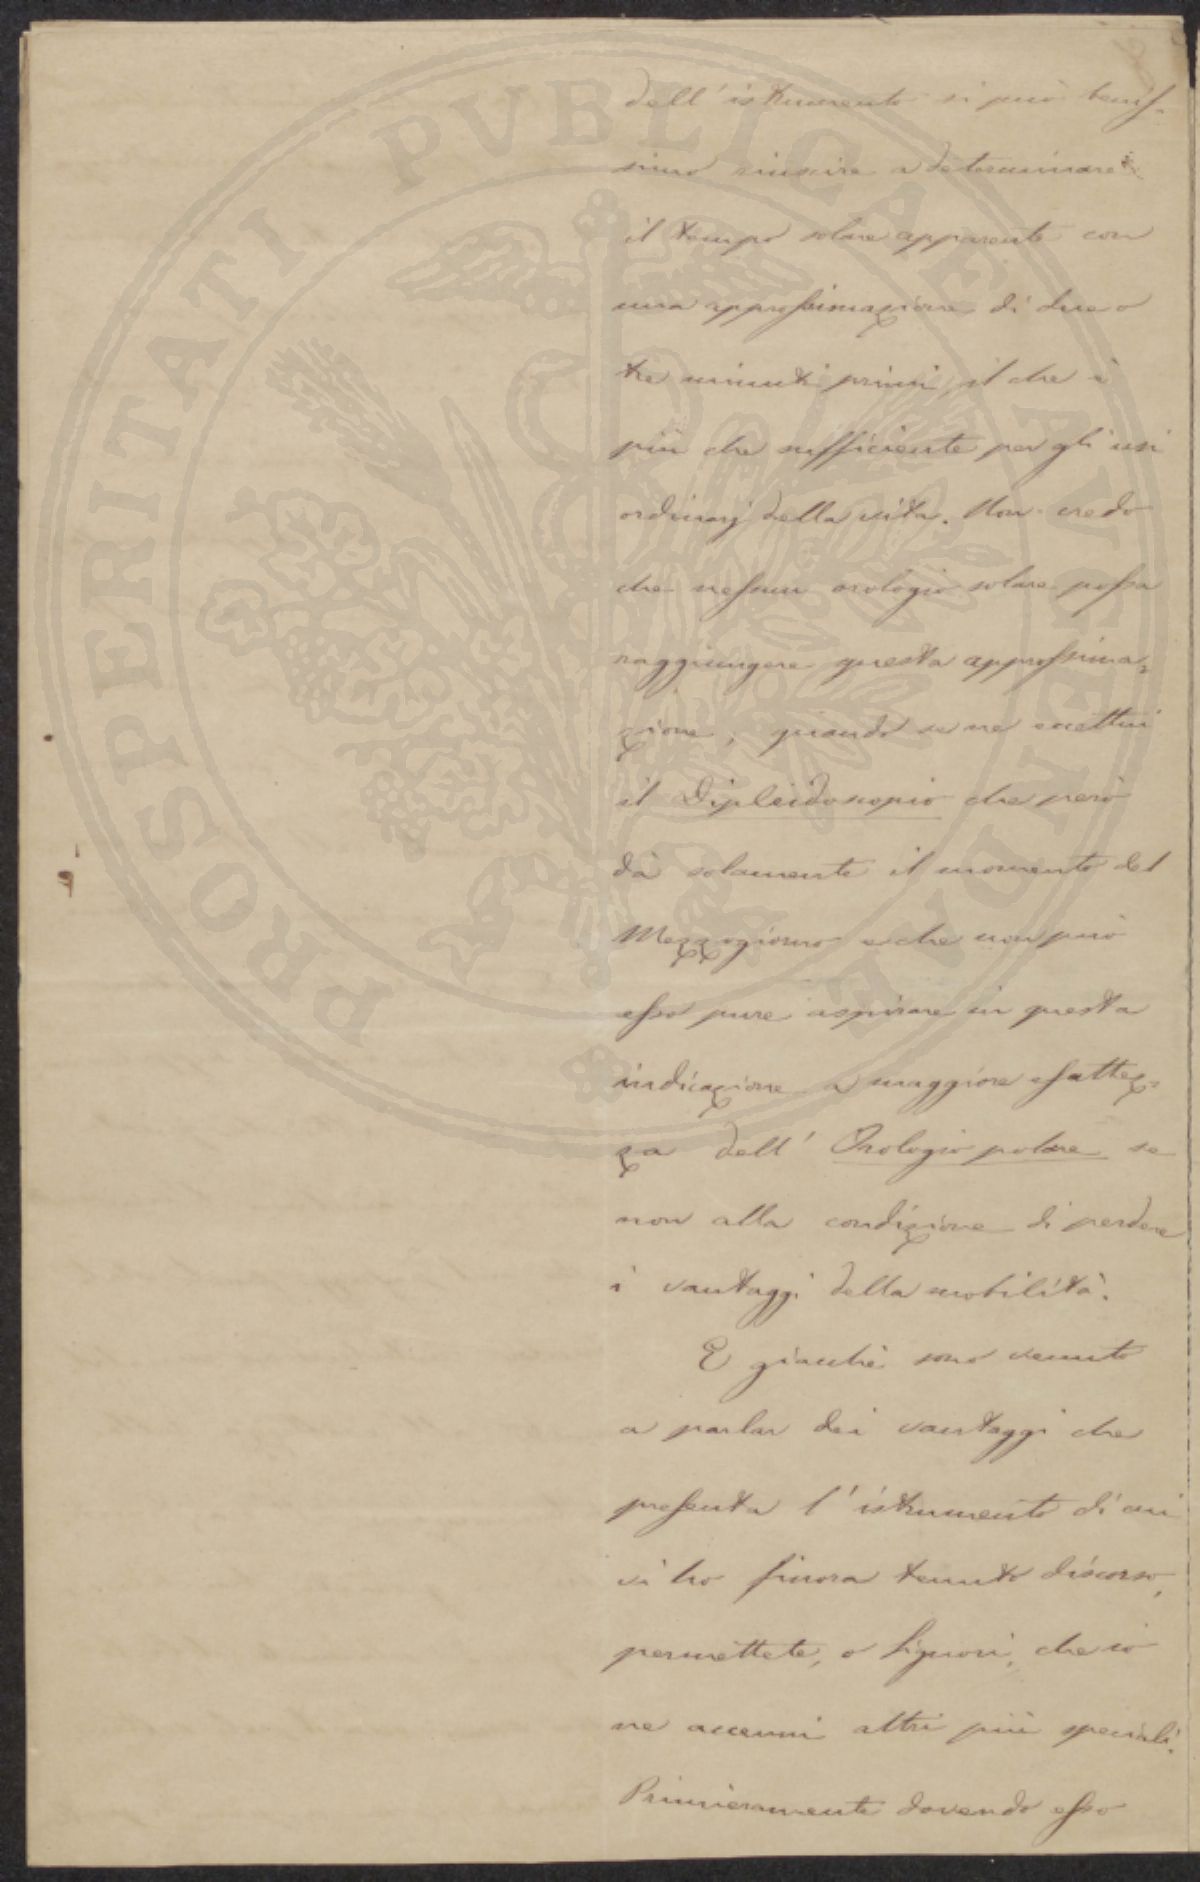 PROSPERITATI PVBLICAE AVGENDAE
dell'istrumento si può benis-
simo riuscire a determinare
il tempo solare apparente con
una approssimazione di due o
tre minuti primi, il che è
più che sufficiente per gli usi
ordinarj della vita. Non credo
che nessun orologio solare possa
raggiungere questa approssima-
zione, quando se ne eccettui
il Dipleidoscopio che però
dà solamente il momento del
Mezzogiorno e che non può
esso pure aspirare in questa
indicazione a maggiore esattez-
za dell'Orologio polare se
non alla condizione di perdere
i vantaggi della mobilità.
E giacchè sono venuto
a parlar dei vantaggi che
presenta l'istrumento di cui
vi ho finora tenuto discorso,
permettete, o Signori, che io
ne accenni altri più speciali.
Primieramente dovendo esso